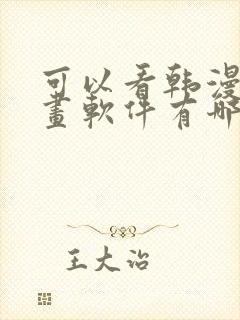 可以看韩漫
畫軟件有哪
王大治